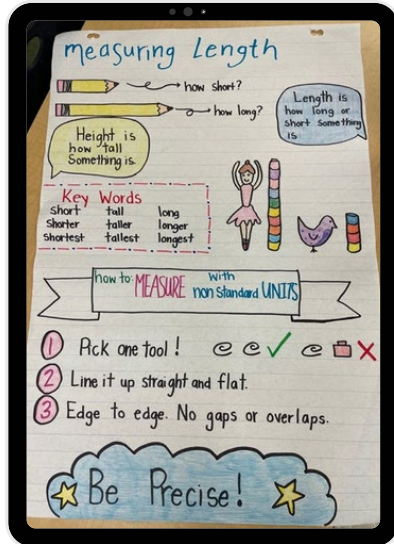 measuring Length
how short?
how long?
Length is
how long or
short something
is
Height is
how tall
Something is.
Key Words
Short tall long
Shorter taller longer
Shortest tallest longest
how to: MEASURE with
non Standard UNITS
1 Pick one tool!
2 Line it up straight and flat.
3 Edge to edge. No gaps or overlaps.
Be Precise!